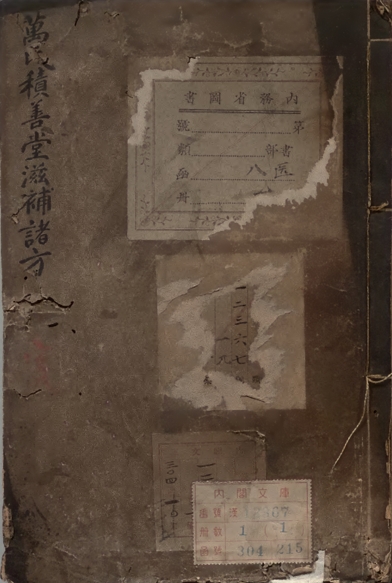 萬氏積善堂滋補諸方
内務省圖書
第
號
書部 医
類 八
函
冊
一二三六七
一九
内閣文庫
番號 漢 2307
冊數 1 (1)
函號 304 215